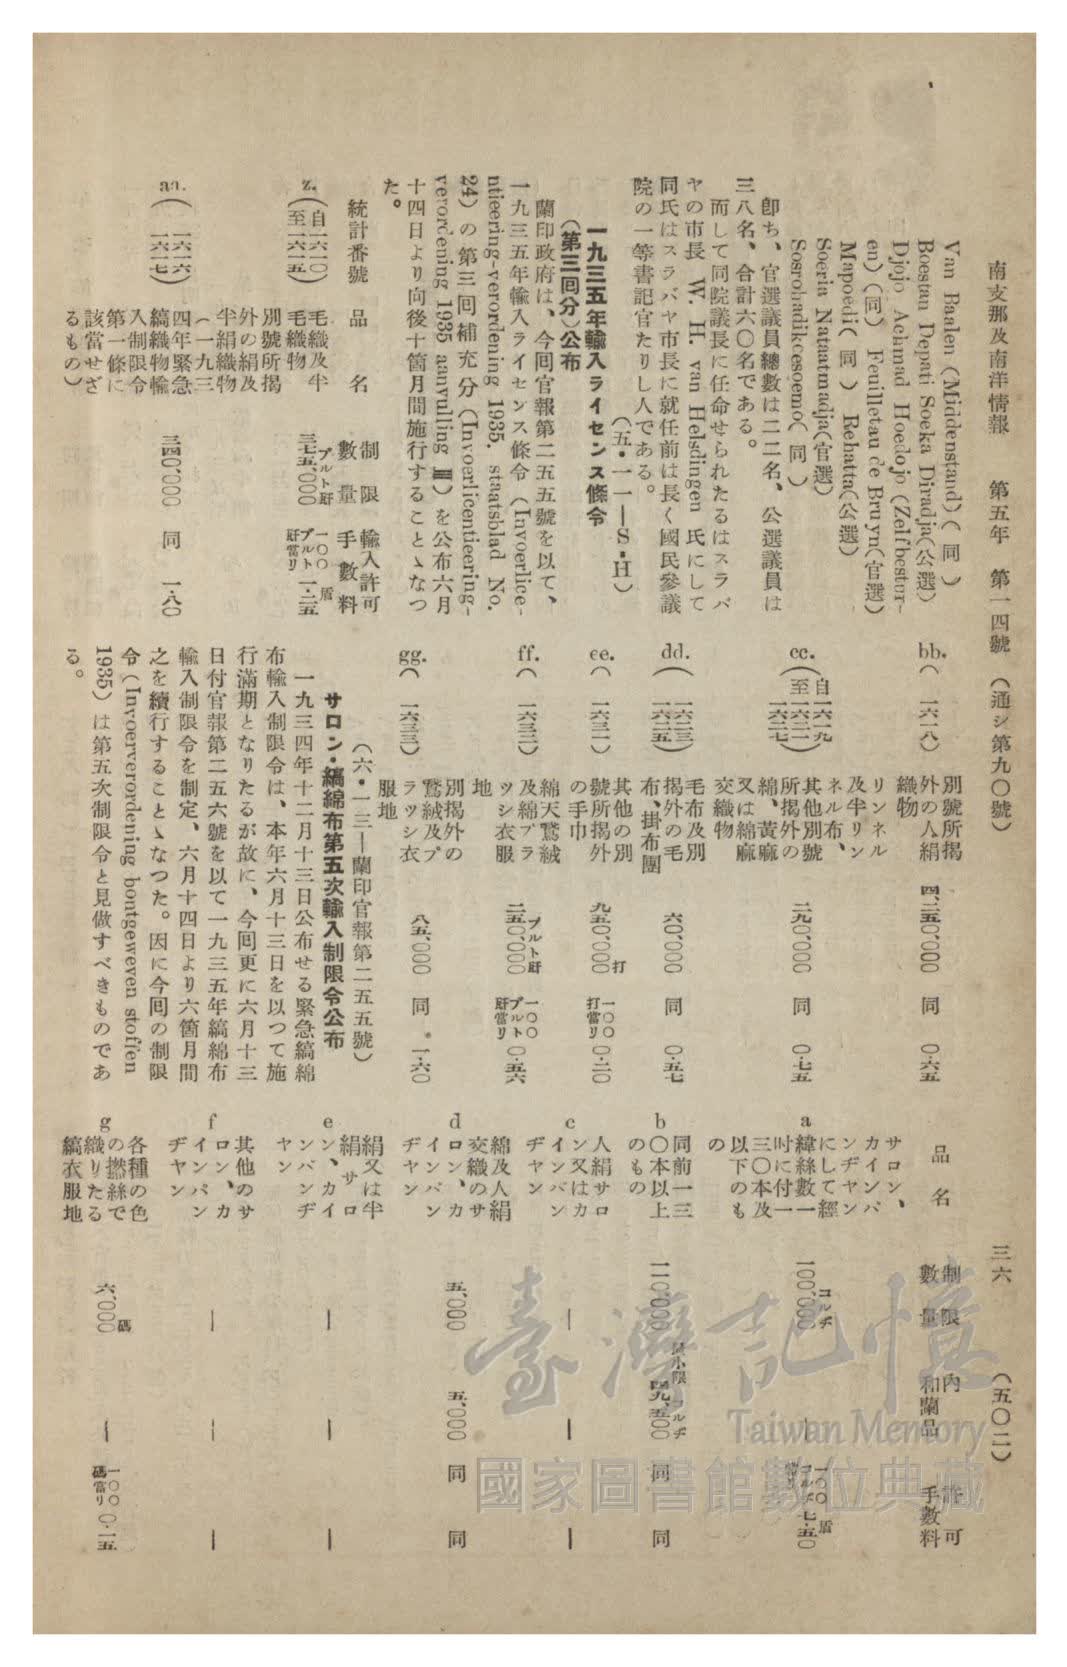 南支那及南洋情報　第五年　第一四號　（通シ第九〇號）　三六　（五〇二）
Van Baalen（Middenstand）（同）
Boestan Depati Soeka Diradja（公選）
Djojo Achmad Hoedojo（Zelfbestur-
en）（同）　Feuilletau de Bruyn（官選）
Mapoedi（同）　Rehatta（公選）
Soeria Nataatmadja（官選）
Sosrohadikoesoemo（同）
卽ち、官選議員總數は二二名、公選議員は
三八名、合計六〇名である。
而して同院議長に任命せられたるはスラバ
ヤの市長 W. H. van Helsdingen 氏にして
同氏はスラバヤ市長に就任前は長く國民參議
院の一等書記官たりし人である。
（五・一一―S・H）
一九三五年輸入ライセンス條令
（第三囘分）公布
蘭印政府は、今囘官報第二五五號を以て、
一九三五年輸入ライセンス條令（Invoerlice-
ntieering-verordening 1935. staatsblad No.
24）の第三囘補充分（Invoerlicentieering-
verordening 1935 aanvulling Ⅲ）を公布六月
十四日より向後十箇月間施行することゝなつ
た。
統計番號　品　名　制限數量　輸入許可手數料
z.（自一六一〇至一六一五）　毛織及半毛織物　三七五、〇〇〇ブルト瓩　一〇〇ブルト瓩當リ　一・二五盾
aa.（一六一六）（一六一七）　別號所揭外の絹及半絹織物（一九三四年緊急縞織物輸入制限令第一條に該當せざるもの）　三四〇、〇〇〇　同　一・八〇
bb.（一六一八）　別號所揭外の人絹織物　四、二五〇、〇〇〇　同　〇・六五
cc.（自一六一九至一六二一）（一六二七）　リンネル及半リンネル布、其他別號所揭外の綿、黃麻又は綿麻交織物　二九〇、〇〇〇　同　〇・七五
dd.（一六二三）（一六二五）　毛布及別揭外の毛布、掛布團　六〇、〇〇〇　同　〇・五七
ee.（一六三一）　其他の別號所揭外の手巾　九五〇、〇〇〇打　一〇〇打當リ　〇・二〇
ff.（一六三二）　綿天鵞絨及綿プラツシ衣服地　二五〇、〇〇〇ブルト瓩　一〇〇ブルト瓩當リ　〇・五六
gg.（一六三三）　別揭外の鵞絨及プラツシ衣服地　八五、〇〇〇　同　一・六〇
（六・一三―蘭印官報第二五五號）
サロン・縞綿布第五次輸入制限令公布
一九三四年十二月十三日公布せる緊急縞綿
布輸入制限令は、本年六月十三日を以つて施
行滿期となりたるが故に、今囘更に六月十三
日付官報第二五六號を以て一九三五年縞綿布
輸入制限令を制定、六月十四日より六箇月間
之を續行することゝなつた。因に今囘の制限
令（Invoerverordening bontgeweven stoffen
1935）は第五次制限令と見做すべきものであ
る。
品　名　制限數量　內和蘭品　許可手數料
a　サロン、カインパンヂヤンにして經緯絲數一吋に付一三〇本及以下のもの　一〇〇、〇〇〇コルヂ　―　一〇〇コルヂ當リ　七・五〇盾
b　同前一三〇本以上のもの　一一〇、〇〇〇　最小限　四九、五〇〇コルヂ　同　同
c　人絹サロン又はカインパンヂヤン　―　―　―
d　綿及人絹交織のサロン、カインパンヂヤン　五、〇〇〇　五、〇〇〇　同　同
e　絹又は半絹サロン、カインパンヂヤン　―　―　―
f　其他のサロン、カインパンヂヤン　―　―　―
g　各種の色の撚絲で織りたる縞衣服地　六、〇〇〇碼　―　一〇〇碼當リ　〇・一五
臺灣記憶
Taiwan Memory
國家圖書館數位典藏